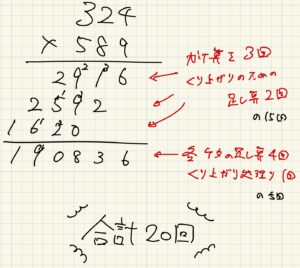 324
× 589
2916
2592
1620
190836
かけ算を3回
くり上がりのための
足し算2回
の15回
各ケタの足し算4回
くり上がり処理1回
の5回
合計20回